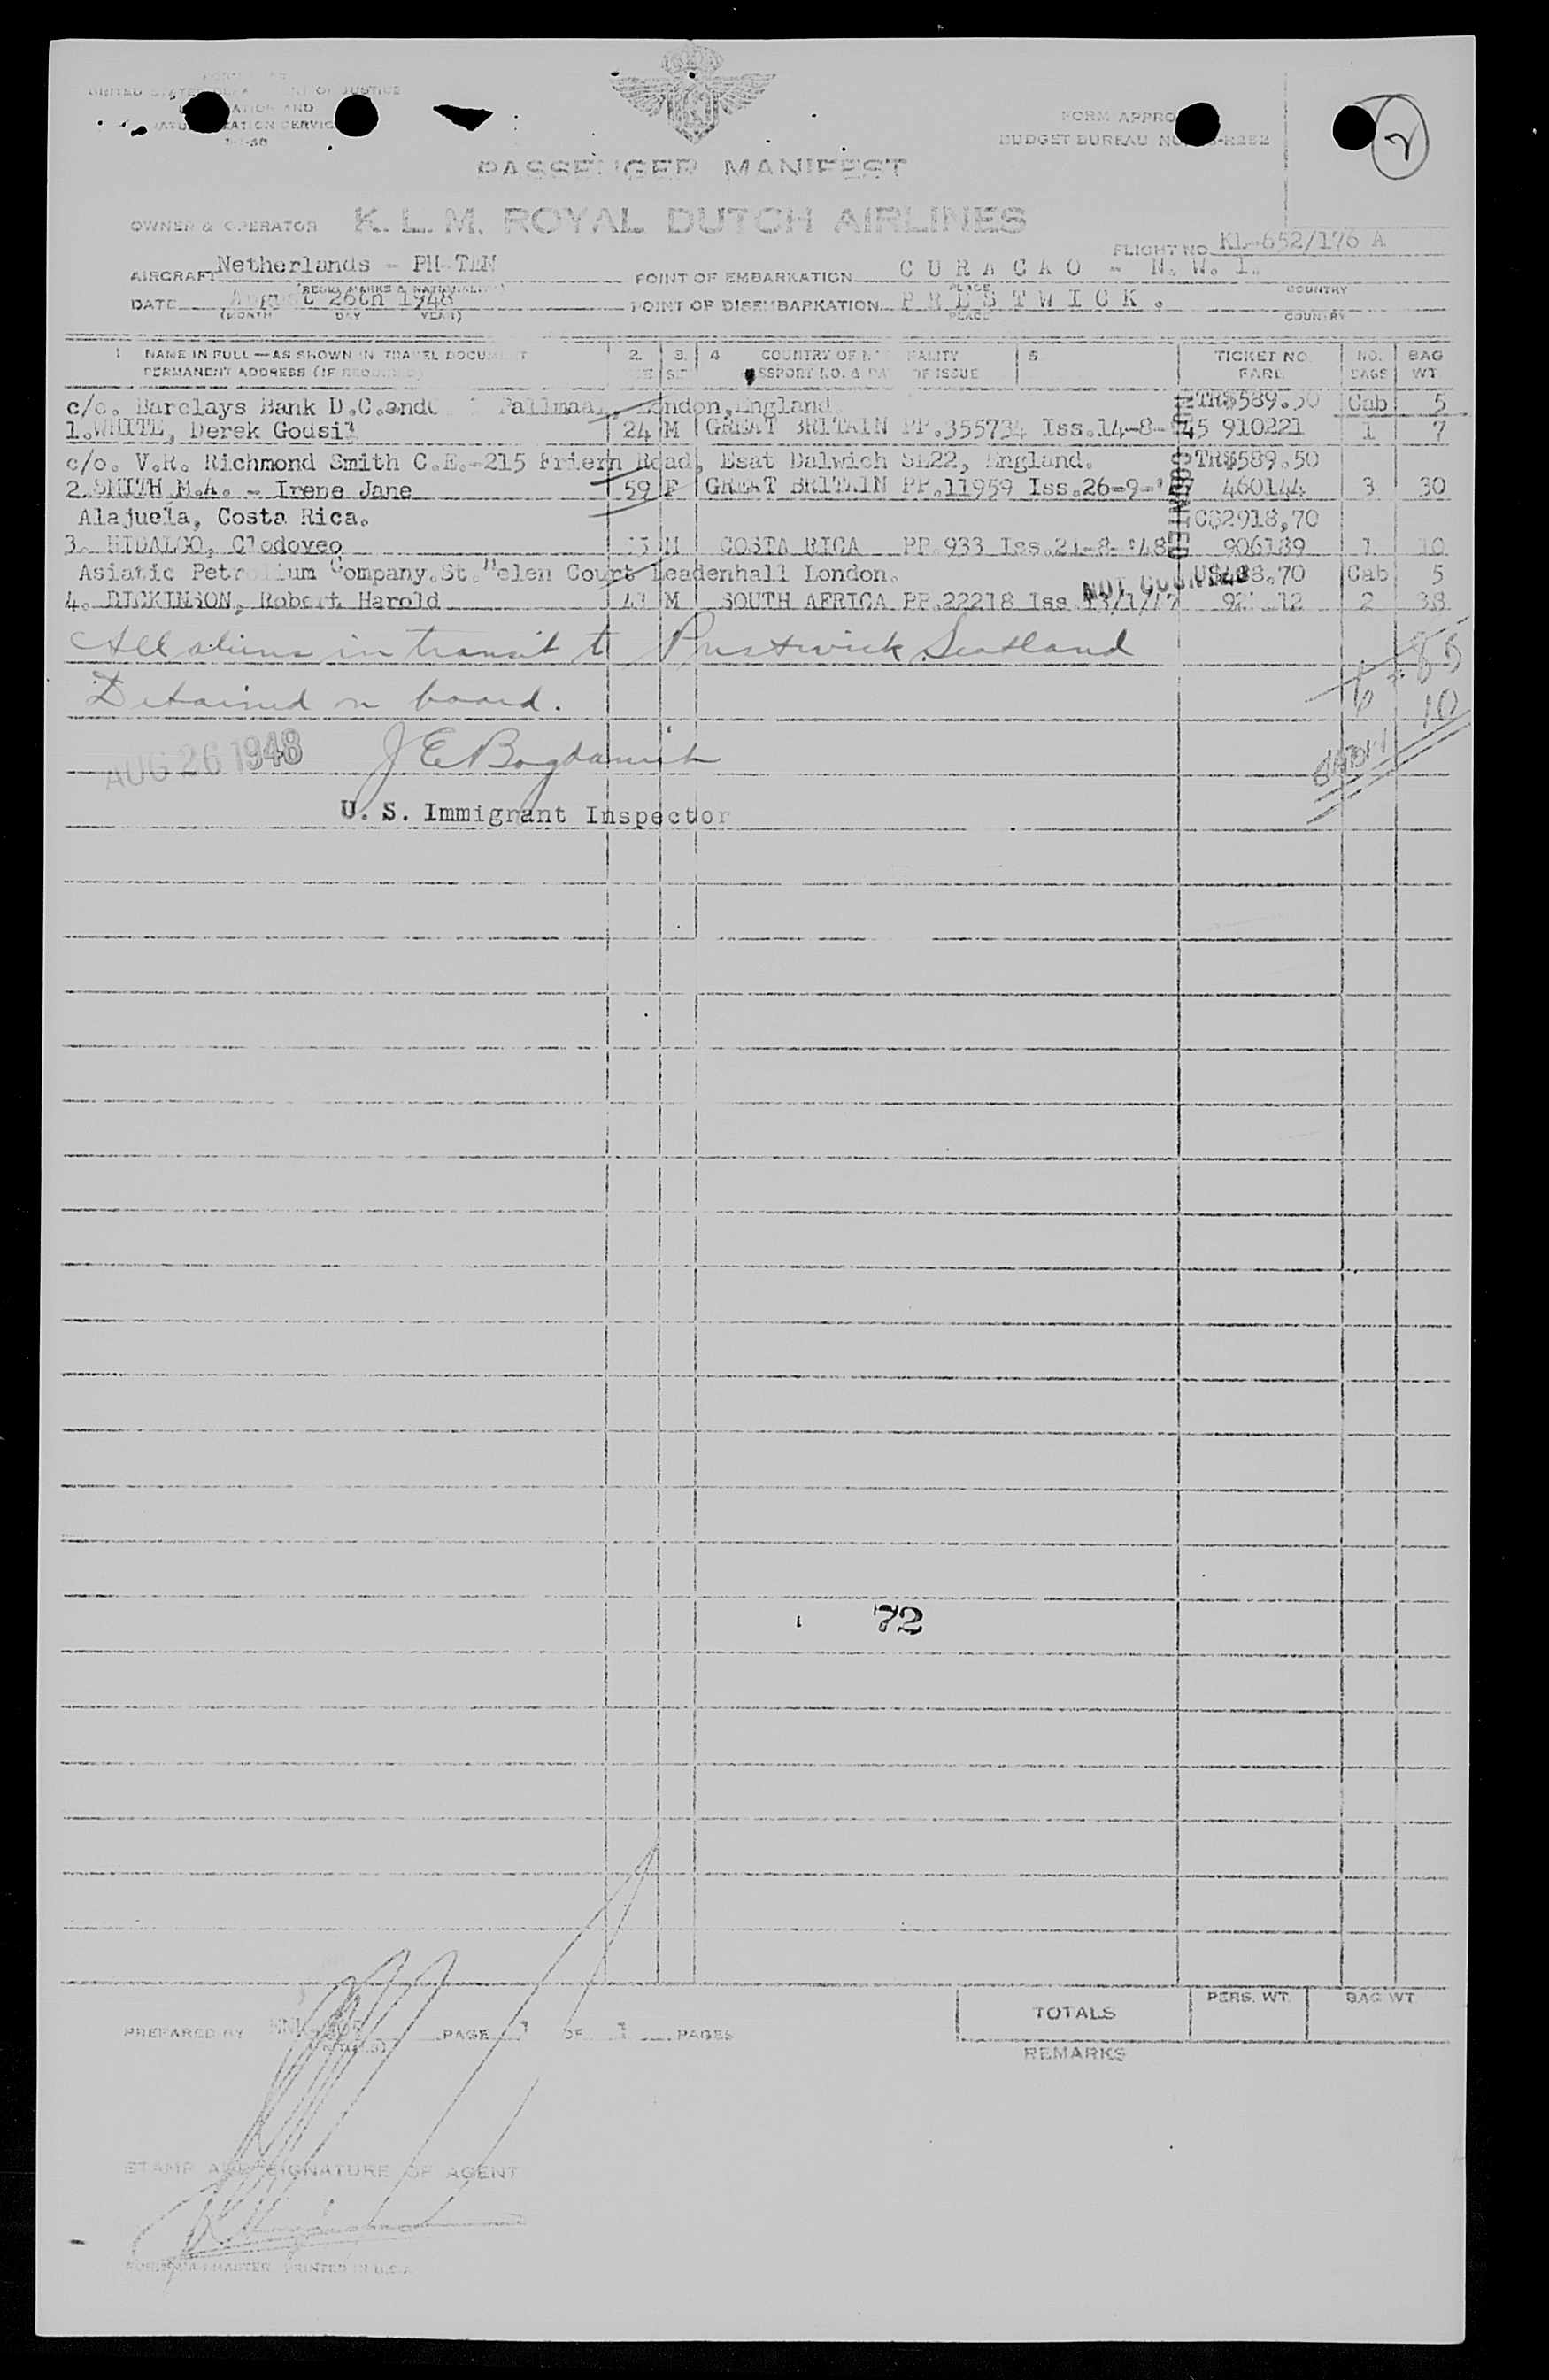 UNITED STATES DEPARTMENT OF JUSTICE
AND
SERVICE
FORM APPRO
BUDGET BUREAU NO.
2
PASSENGER MANIFEST
OWNER & OPERATOR K. L. M. ROYAL DUTCH AIRLINES
FLIGHT NO. KL-652/176 A
AIRCRAFT Netherlands - PH-TEN POINT OF EMBARKATION C U R A C A O - N. W. I.
(REGN. MARKS & NATIONALITY) PLACE COUNTRY
DATE August 26th 1948 POINT OF DISEMBARKATION P R E S T W I C K .
(MONTH DAY YEAR) PLACE COUNTRY
1 NAME IN FULL — AS SHOWN IN TRAVEL DOCUMENT 2. 3. 4 COUNTRY OF NATIONALITY 5. TICKET NO. NO. BAG
PERMANENT ADDRESS (IF REQUIRED) SEX PASSPORT NO. & DATE OF ISSUE FARE BAGS WT
c/o. Barclays Bank D.C.and Pallmaal, London, England. TR$589.50 Cab 5
1.WHITE, Derek Godsil 24 M GREAT BRITAIN PP.355734 Iss.14-8-'45 910221 1 7
c/o. V.R. Richmond Smith C.E.-215 Friern Road, Esat Dalwich SE22, England. TR$589.50
2.SMITH M.A. - Irene Jane 59 F GREAT BRITAIN PP.11959 Iss.26-9- 460144 3 30
Alajuela, Costa Rica. C$2918,70
3. HIDALGO, Clodoveo M COSTA RICA PP.933 Iss.21-8-'48 906189 1 10
Asiatic Petrolium Company.St.Helen Court Leadenhall London. Cab 5
4. DICKINSON, Robert Harold 41 M SOUTH AFRICA PP.22218 Iss 13/1/47 2 38
NOT COUNTED
NOT COUNTED
All aliens in transit to Prestwick Scotland
Detained on board.
AUG 26 1948 J E Bogdanich
U. S. Immigrant Inspector
72
PREPARED BY PAGE 1 OF 1 PAGES
TOTALS PERS. WT. BAG WT
REMARKS
STAMP AND SIGNATURE OF AGENT
PRINTED IN U.S.A.